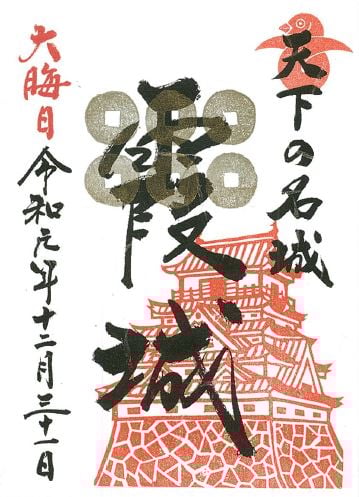 天下の名城
霞城
大晦日
令和元年十二月三十一日